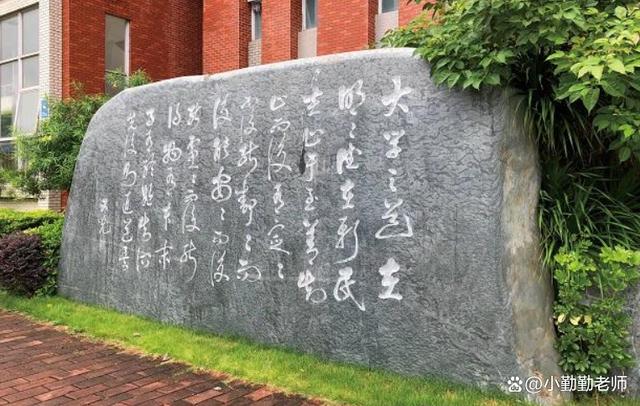 大学之道在
明〻德在新民
在止于至善知
止而後有定〻
而後能静〻而
後能安〻而後
能虑〻而後能
得物有本末
事有终始知所
先後则近道矣
@小勤勤老师